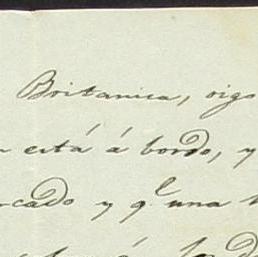 Britanica, oigo
está á bordo, y
cado y q^e una